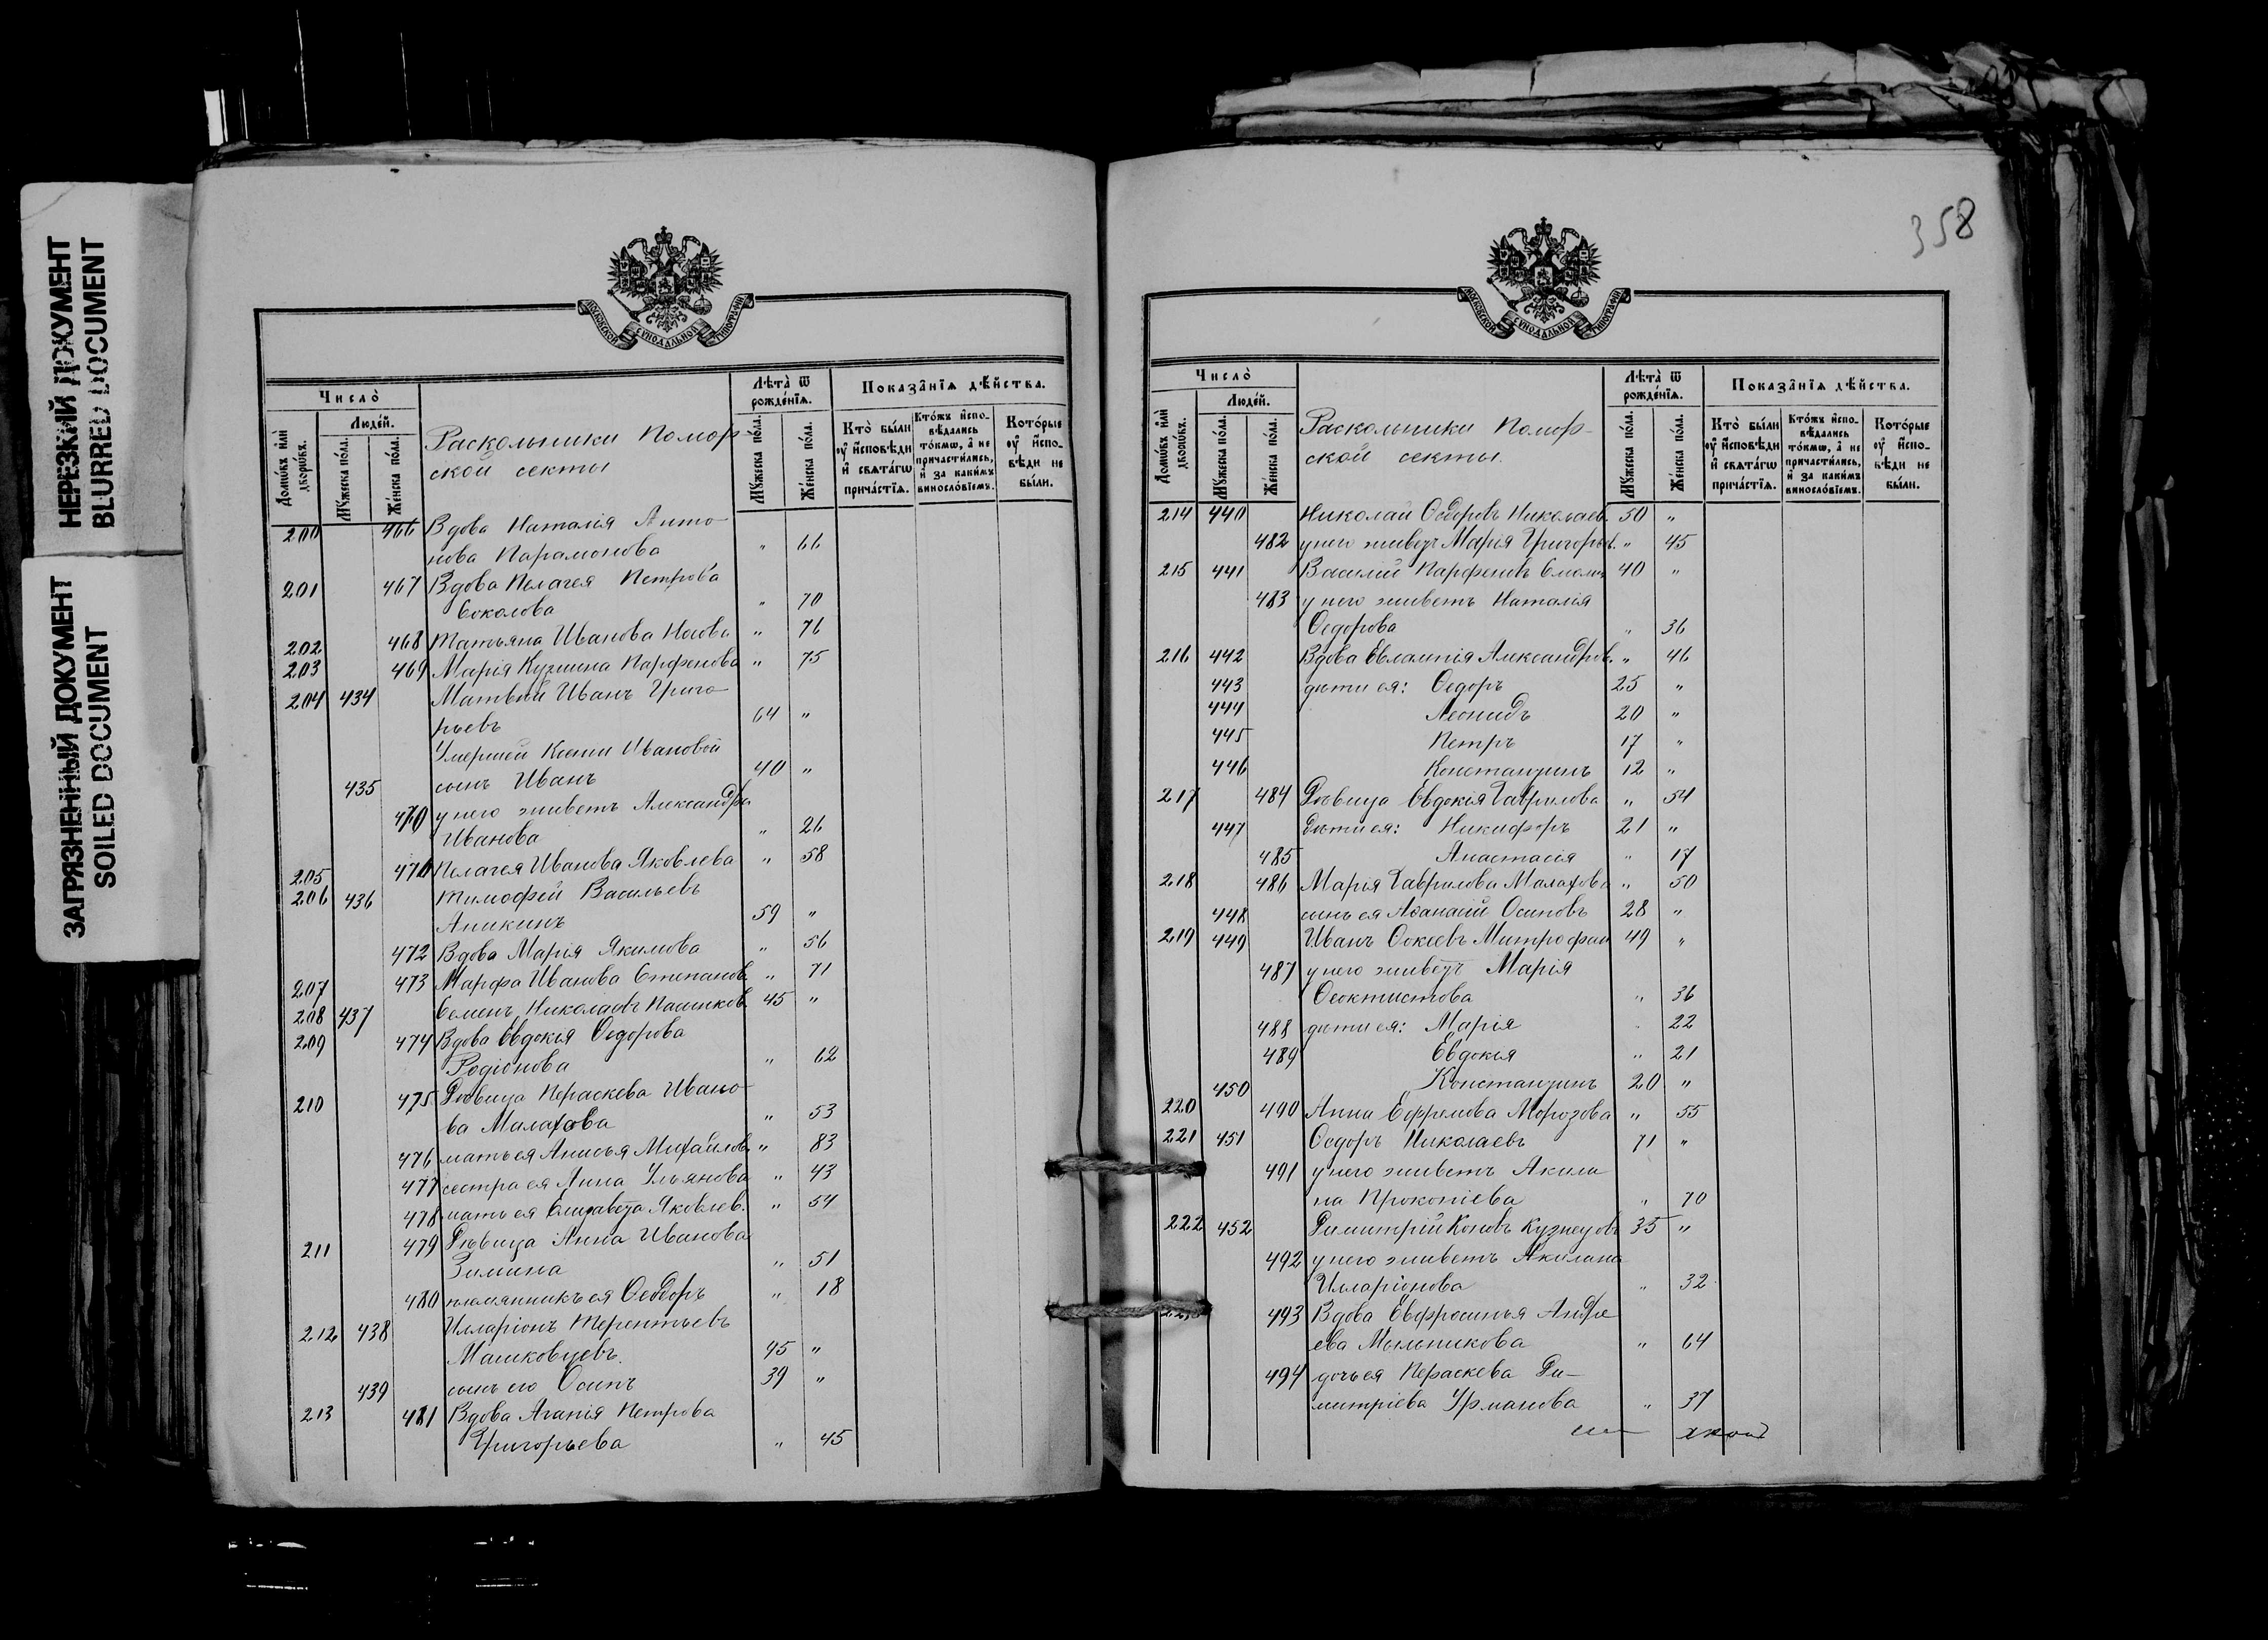 НЕРЕЗКИЙ ДОКУМЕНТ
BLURRED DOCUMENT
ЗАГРЯЗНЕННЫЙ ДОКУМЕНТ
SOILED DOCUMENT
МОСКОВСКОЙ СѴНОДАЛЬНОЙ ТИПОГРАФІИ
Число̀
Людéй.
Домѡ́въ и҆лѝ дворѡ́въ.
Мꙋ́жеска по́ла.
Же́нска по́ла.
Раскольники Помор-
ской секты
Лѣта̀ ѿ рожде́нїѧ.
Мꙋ́жеска по́ла.
Же́нска по́ла.
Показа̑нїѧ дѣ́йства.
Кто̀ бы́ли ᲂу҆ и҆сповѣ́ди и҆ свѧта́гѡ прича́стїѧ.
Кто́жъ и҆спо-вѣ́дались то́кмѡ, а҆ не причасти́лись, и҆ за каки́мъ винословїемъ.
Кото́рые ᲂу҆ и҆спо-вѣ́ди не бы́ли.
200 466 Вдова Наталія Анто-
нова Парамонова " 66
201 467 Вдова Пелагея Петрова
Соколова " 70
202 468 Татьяна Иванова Носова " 76
203 469 Марія Кузмина Парфенова " 75
204 434 Матвѣй Иванъ Григо-
рьевъ 64 "
Умершей Ксеніи Ивановой
435 сынъ Иванъ 40 "
470 у него живетъ Александра
Иванова " 26
205 471 Пелагея Иванова Яковлева " 58
206 436 Тимофей Васильевъ
Аникинъ 59 "
472 Вдова Марія Якимова " 56
207 473 Марфа Иванова Степанов. " 71
208 437 Семенъ Николаевъ Пашков. 45 "
209 474 Вдова Евдокія Ѳедорова
Родіонова " 62
210 475 Дѣвица Параскева Ивано-
ва Малахова " 53
476 мать ея Анисья Михайлов. " 83
477 сестра ея Анна Ульянова " 43
478 мать ея Елизавета Яковлев. " 54
211 479 Дѣвица Анна Иванова
Зимина " 51
480 племянникъ ея Ѳеодоръ " 18
212 438 Илларіонъ Терентьевъ
Машковцевъ. 45 "
439 сынъ его Осипъ 39 "
213 481 Вдова Агапія Петрова
Григорьева " 45
358
МОСКОВСКОЙ СѴНОДАЛЬНОЙ ТИПОГРАФІИ
Число̀
Людéй.
Домѡ́въ и҆лѝ дворѡ́въ.
Мꙋ́жеска по́ла.
Же́нска по́ла.
Раскольники Помор-
ской секты.
Лѣта̀ ѿ рожде́нїѧ.
Мꙋ́жеска по́ла.
Же́нска по́ла.
Показа̑нїѧ дѣ́йства.
Кто̀ бы́ли ᲂу҆ и҆сповѣ́ди и҆ свѧта́гѡ прича́стїѧ.
Кто́жъ и҆спо-вѣ́дались то́кмѡ, а҆ не причасти́лись, и҆ за каки́мъ винословїемъ.
Кото́рые ᲂу҆ и҆спо-вѣ́ди не бы́ли.
214 440 Николай Ѳедоровъ Николаев. 50 "
482 у него живетъ Марія Григорьев. " 45
215 441 Василій Парфеновъ 40 "
483 у него живетъ Наталія
Ѳедорова " 36
216 442 Вдова Евлампія Александров. " 46
443 дѣти ея: Ѳедоръ 25 "
444 Леонидъ 20 "
445 Петръ 17 "
446 Константинъ 12 "
217 484 Дѣвица Евдокія Гаврилова " 54
447 Дѣти ея: Никифоръ 21 "
485 Анастасія " 17
218 486 Марія Гаврилова Малахова " 50
448 сынъ ея Аѳанасій Осиповъ 28 "
219 449 Иванъ Ѳокеевъ Митрофан 49 "
487 у него живетъ Марія
Ѳеоктистова " 36
488 дѣти ея: Марія " 22
489 Евдокія " 21
450 Константинъ 20 "
220 490 Анна Ефремова Морозова " 55
221 451 Ѳедоръ Николаевъ 71 "
491 у него живетъ Акили-
на Прокопіева " 70
222 452 Димитрій Коновъ Кузнецовъ 35 "
492 у него живетъ Акилина
Илларіонова " 32
223 493 Вдова Евфросинья Андре-
ева Мыльникова " 64
494 дочь ея Параскева Ди-
митріева Урманова " 37